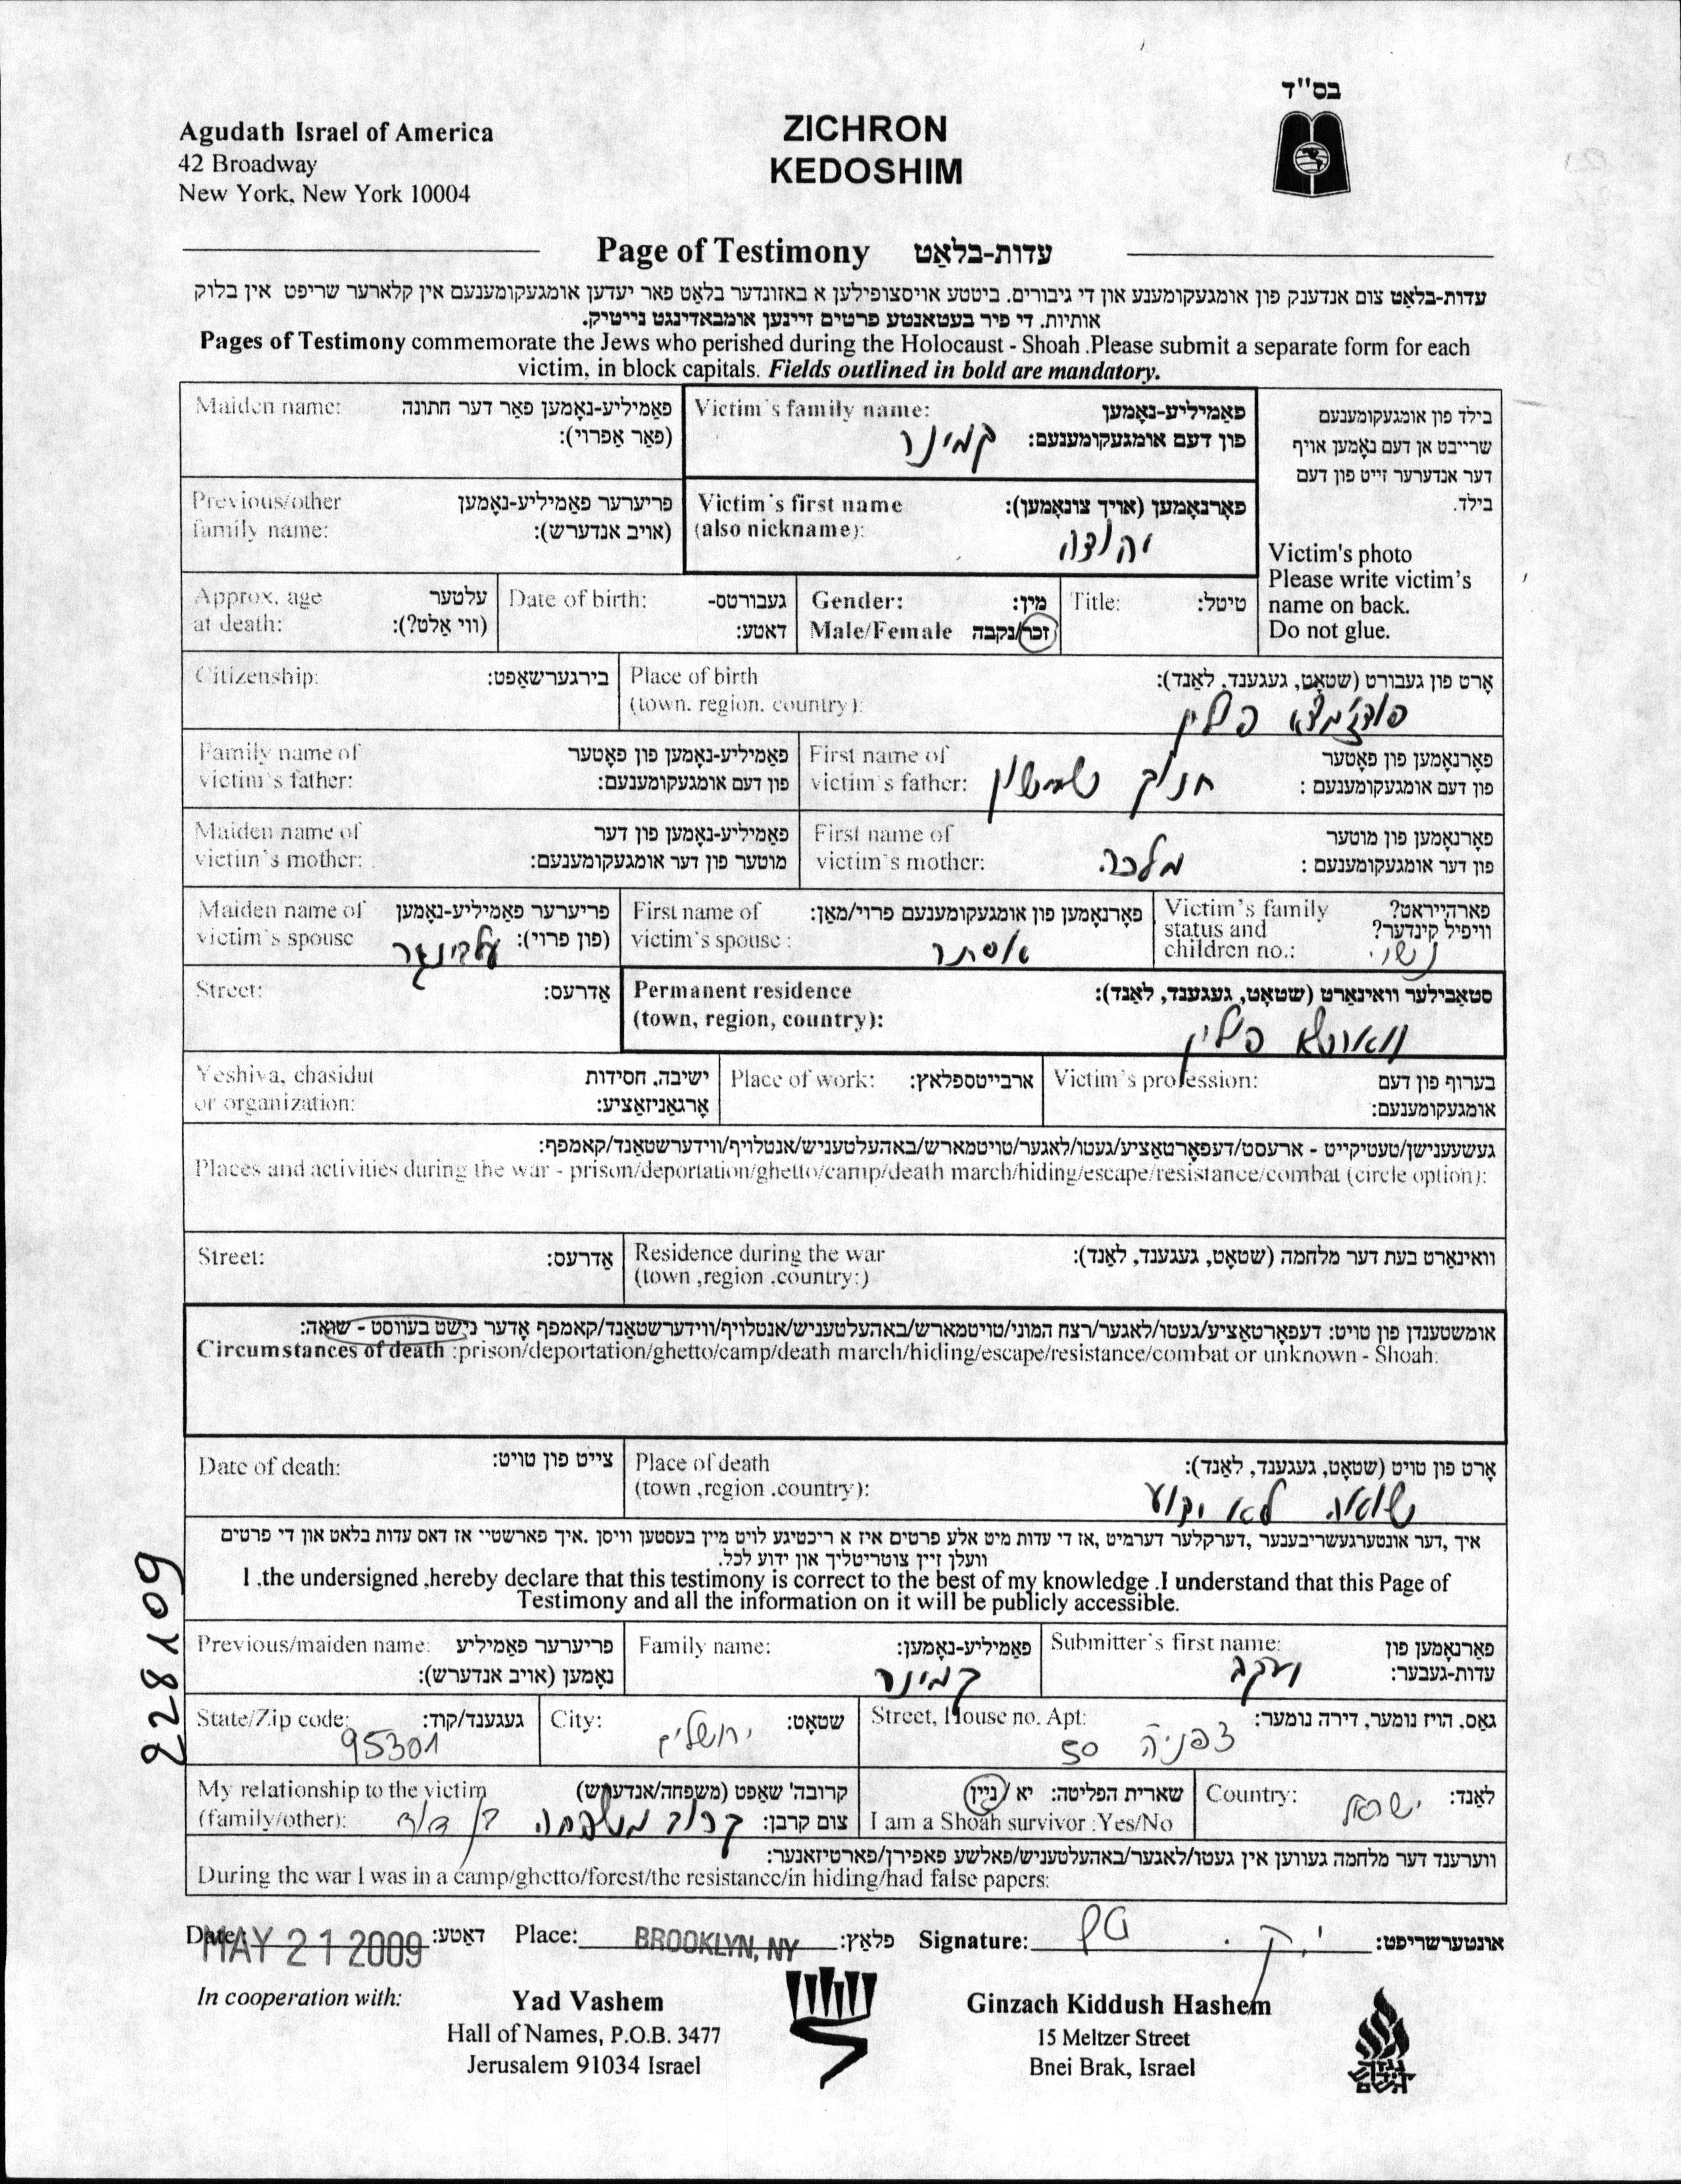 בס"ד
Agudath Israel of America
42 Broadway
New York, New York 10004
ZICHRON
KEDOSHIM
Page of Testimony עדות-בלאַט
עדות-בלאַט צום אנדענק פון אומגעקומענע און די גיבורים. ביטטע אויסצופילען א באזונדער בלאַט פאר יעדען אומגעקומענעם אין קלארער שריפט אין בלוק
אותיות. די פיר בעטאנטע פרטים זיינען אומבאדינגט נייטיק.
Pages of Testimony commemorate the Jews who perished during the Holocaust - Shoah .Please submit a separate form for each
victim, in block capitals. Fields outlined in bold are mandatory.
Maiden name: פאַמיליע-נאָמען פאַר דער חתונה
(פאַר אַפרוי):
Victim's family name: פאַמיליע-נאָמען
פון דעם אומגעקומענעם: קמינר
בילד פון אומגעקומענעם
שרייבט אן דעם נאָמען אויף
דער אנדערער זייט פון דעם
בילד.
Victim's photo
Please write victim's
name on back.
Do not glue.
Previous/other פריערער פאַמיליע-נאָמען
family name: (אויב אנדערש):
Victim's first name פאָרנאָמען (אויך צונאָמען):
(also nickname):
יהודה
Approx. age עלטער
at death: (ווי אַלט?):
Date of birth: געבורטס-
דאטע:
Gender: מין:
Male/Female זכר/נקבה
Title: טיטל:
Citizenship: בירגערשאַפט:
Place of birth אָרט פון געבורט (שטאָט, געגענד, לאַנד):
(town. region. country):
פולין
Family name of פאַמיליע-נאָמען פון פאָטער
victim's father: פון דעם אומגעקומענעם:
First name of פאָרנאָמען פון פאָטער
victim's father: פון דעם אומגעקומענעם :
חנוך שמשון
Maiden name of פאַמיליע-נאָמען פון דער
victim's mother: מוטער פון דער אומגעקומענעם:
First name of פאָרנאָמען פון מוטער
victim's mother: פון דער אומגעקומענעם :
מלכה
Maiden name of פריערער פאַמיליע-נאָמען
victim's spouse (פון פרוי):
First name of פאָרנאָמען פון אומגעקומענעם פרוי/מאַן:
victim's spouse :
אסתר
Victim's family פארהייראט?
status and וויפיל קינדער?
children no.: נשוי
Street: אַדרעס:
Permanent residence סטאַבילער וואינאַרט (שטאָט, געגענד, לאַנד):
(town, region, country):
ווארשא פולין
Yeshiva, chasidut ישיבה, חסידות
or organization: אָרגאַניזאַציע:
Place of work: ארבייטספלאץ:
Victim's profession: בערוף פון דעם
אומגעקומענעם:
געשעענישן/טעטיקייט - ארעסט/דעפאָרטאַציע/געטו/לאגער/טויטמארש/באהעלטעניש/אנטלויף/ווידערשטאַנד/קאמפף:
Places and activities during the war - prison/deportation/ghetto/camp/death march/hiding/escape/resistance/combat (circle option):
Street: אַדרעס:
Residence during the war וואינאַרט בעת דער מלחמה (שטאָט, געגענד, לאַנד):
(town ,region .country:)
אומשטענדן פון טויט: דעפאָרטאַציע/געטו/לאגער/רצח המוני/טויטמארש/באהעלטעניש/אנטלויף/ווידערשטאַנד/קאמפף אָדער נישט בעוווסט - שואה:
Circumstances of death :prison/deportation/ghetto/camp/death march/hiding/escape/resistance/combat or unknown - Shoah:
Date of death: צייט פון טויט:
Place of death אָרט פון טויט (שטאָט, געגענד, לאַנד):
(town ,region .country):
שואה לא ידוע
איך ,דער אונטערגעשריבענער ,דערקלער דערמיט ,אז די עדות מיט אלע פרטים איז א ריכטיגע לויט מיין בעסטען וויסן .איך פארשטיי אז דאס עדות בלאט און די פרטים
וועלן זיין צוטריטליך און ידוע לכל.
I .the undersigned ,hereby declare that this testimony is correct to the best of my knowledge .I understand that this Page of
Testimony and all the information on it will be publicly accessible.
228109
Previous/maiden name: פריערער פאַמיליע
נאָמען (אויב אנדערש):
Family name: פאַמיליע-נאָמען:
קמינר
Submitter's first name: פאַרנאָמען פון
עדות-געבער:
יעקב
State/Zip code: געגענד/קוד:
95301
City: שטאָט:
ירושלים
Street, House no. Apt: גאַס, הויז נומער, דירה נומער:
צפניה 50
My relationship to the victim קרובה' שאַפט (משפחה/אנדערש)
(family/other): צום קרבן: קרוב משפחה בן דוד
שארית הפליטה: יא /ניין
I am a Shoah survivor :Yes/No
Country: לאַנד:
ישראל
ווערענד דער מלחמה געווען אין געטו/לאגער/באהעלטעניש/פאלשע פאפירן/פארטיזאנער:
During the war I was in a camp/ghetto/forest/the resistance/in hiding/had false papers:
Date: MAY 21 2009 דאַטע: Place: BROOKLYN, NY פלאַץ: Signature: י.ק. אונטערשריפט:
In cooperation with:
Yad Vashem
Hall of Names, P.O.B. 3477
Jerusalem 91034 Israel
Ginzach Kiddush Hashem
15 Meltzer Street
Bnei Brak, Israel